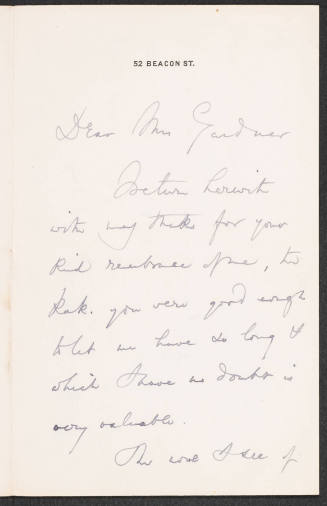 52 BEACON ST.
Dear Mrs Gardner
I return herewith
with my thanks for your
kind remembrance of me, the
book. you were good enough
to let me have so long &
which I have no doubt is
very valuable.
The more I see of